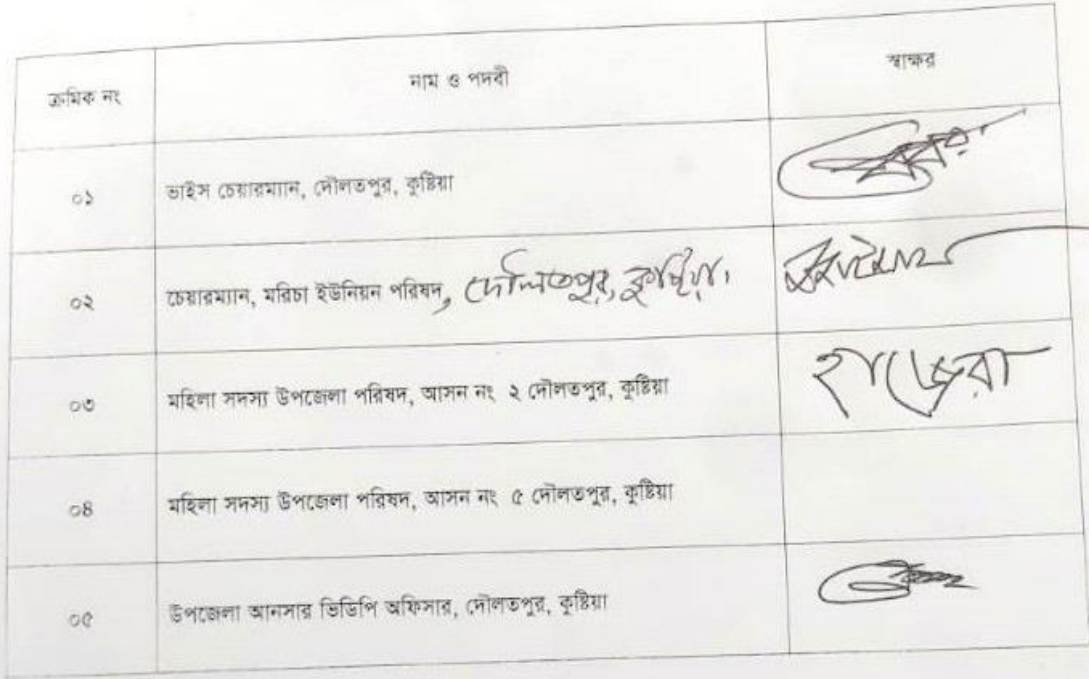 ক্রমিক নং নাম ও পদবী স্বাক্ষর
০১ ভাইস চেয়ারম্যান, দৌলতপুর, কুষ্টিয়া
০২ চেয়ারম্যান, মরিচা ইউনিয়ন পরিষদ, দৌলতপুর, কুষ্টিয়া।
০৩ মহিলা সদস্য উপজেলা পরিষদ, আসন নং ২ দৌলতপুর, কুষ্টিয়া হাজেরা
০৪ মহিলা সদস্য উপজেলা পরিষদ, আসন নং ৫ দৌলতপুর, কুষ্টিয়া
০৫ উপজেলা আনসার ভিডিপি অফিসার, দৌলতপুর, কুষ্টিয়া